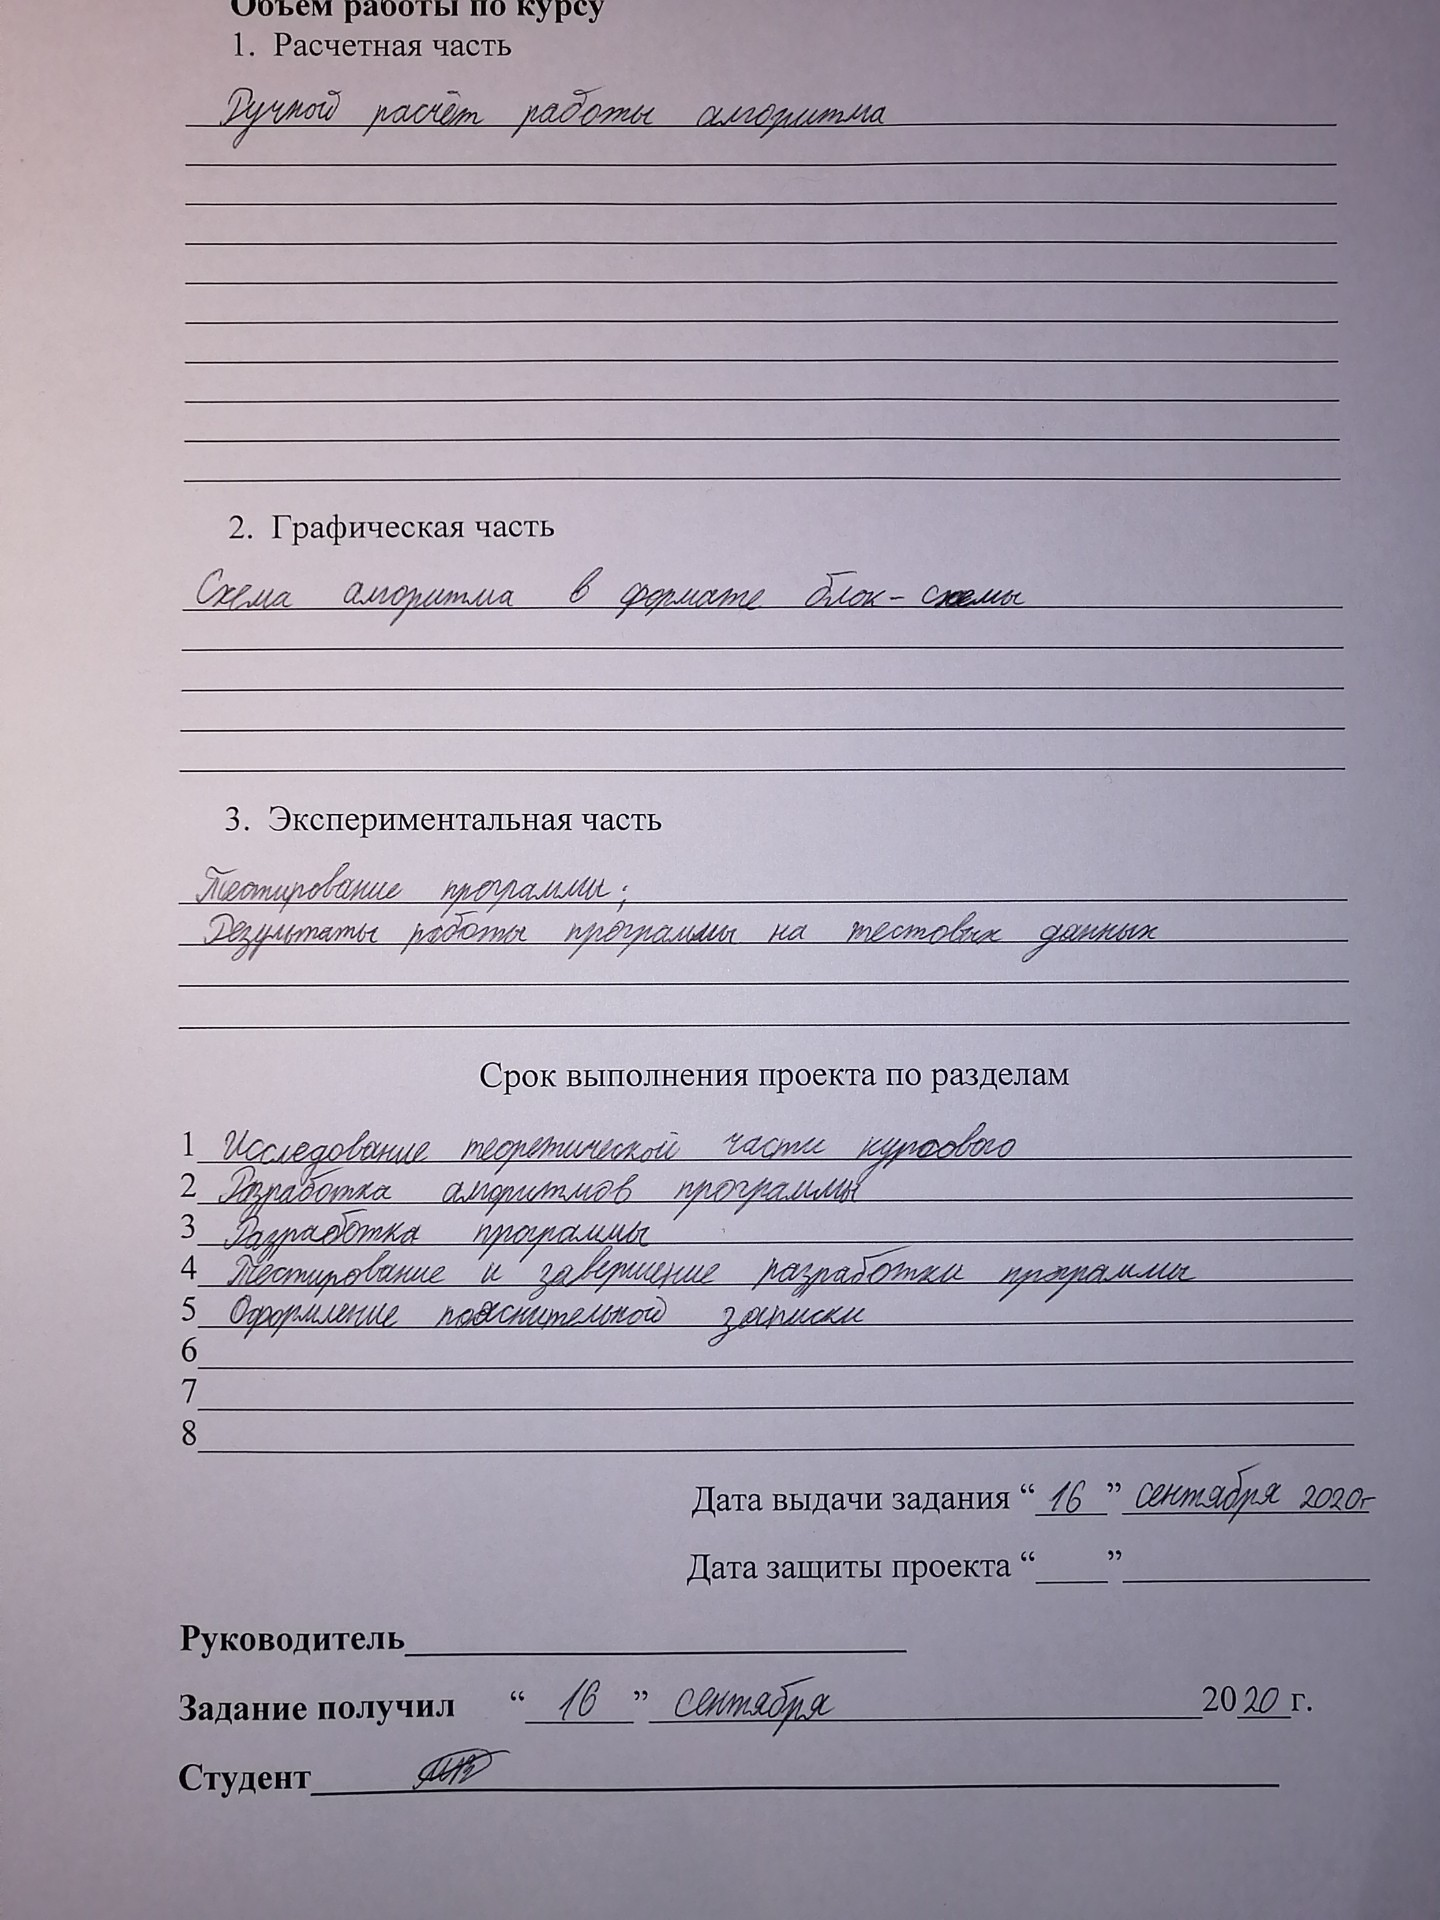 Объем работы по курсу
1. Расчетная часть
Ручной расчёт работы алгоритма
2. Графическая часть
Схема алгоритма в формате блок-схемы
3. Экспериментальная часть
Тестирование программы;
Результаты работы программы на тестовых данных
Срок выполнения проекта по разделам
1 Исследование теоретической части курсового
2 Разработка алгоритмов программы
3 Разработка программы
4 Тестирование и завершение разработки программы
5 Оформление пояснительной записки
6
7
8
Дата выдачи задания “ 16 ” сентября 2020г
Дата защиты проекта “ ”
Руководитель
Задание получил “ 16 ” сентября 2020 г.
Студент